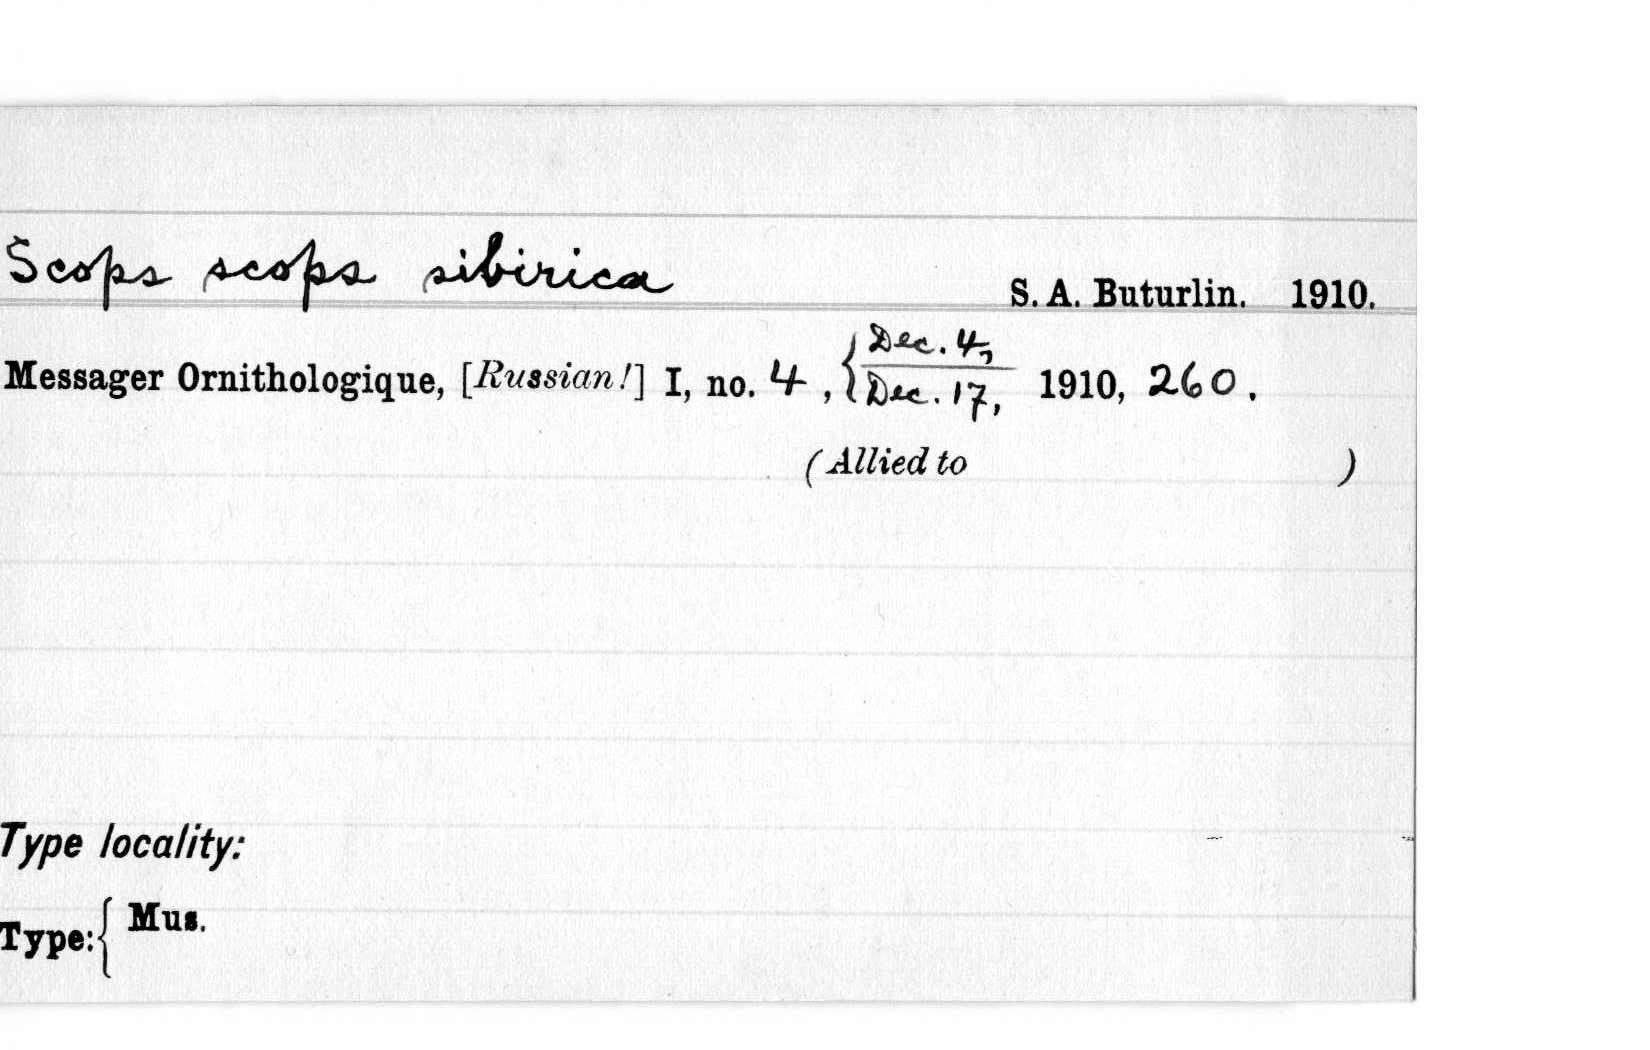 Scops scops sibirica
S. A. Buturlin. 1910.
Messager Ornithologique, [Russian!] I, no. 4, { Dec. 4, Dec. 17, 1910, 260.
(Allied to )
Type locality:
Type: { Mus.